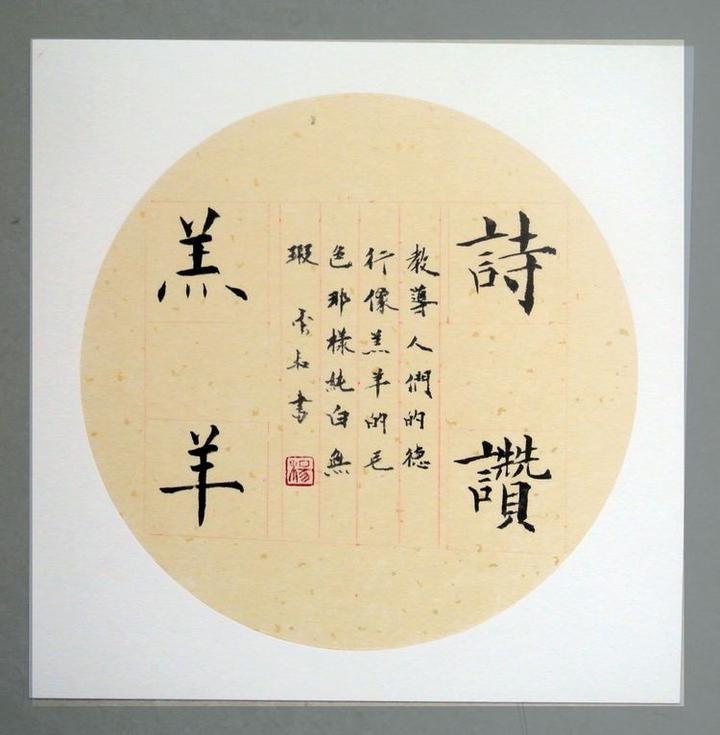 詩讚
教導人們的德
行像羔羊的毛
色那樣純白無
瑕 和書
楊
羔羊